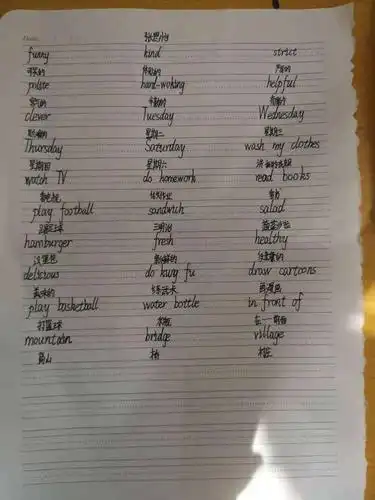 funny kind strict
polite hard-woking helpful
clever Tuesday Wednesday
聪明的 星期二 星期三
Thursday Saturday wash my clothes
星期四 星期六
watch TV do homework read books
play football sandwich salad
踢足球 三明治
hamburger fresh healthy
汉堡包 新鲜的
delicious do kung fu draw cartoons
美味的
play basketball water bottle in front of
打篮球 水瓶
mountain bridge village
高山 桥 村庄